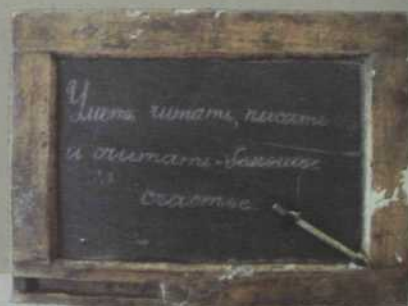 Уметь читать, писать
и считать - большое
счастье